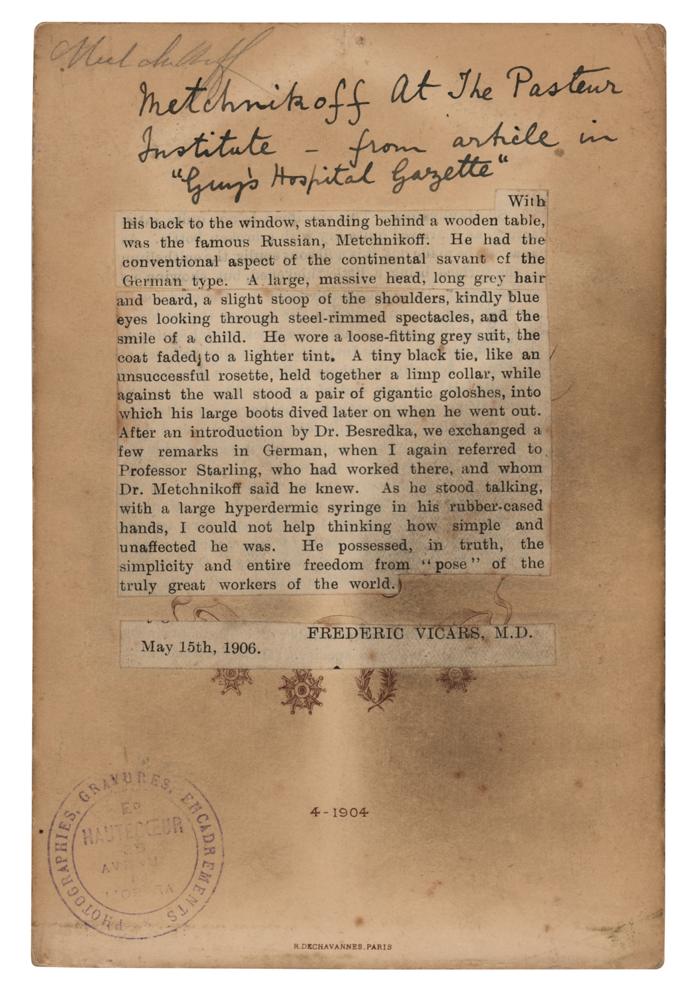 Metchnikoff
Metchnikoff At The Pasteur
Institute - from article in
"Guy's Hospital Gazette"
With
his back to the window, standing behind a wooden table,
was the famous Russian, Metchnikoff. He had the
conventional aspect of the continental savant of the
German type. A large, massive head, long grey hair
and beard, a slight stoop of the shoulders, kindly blue
eyes looking through steel-rimmed spectacles, and the
smile of a child. He wore a loose-fitting grey suit, the
coat faded to a lighter tint. A tiny black tie, like an
unsuccessful rosette, held together a limp collar, while
against the wall stood a pair of gigantic goloshes, into
which his large boots dived later on when he went out.
After an introduction by Dr. Besredka, we exchanged a
few remarks in German, when I again referred to
Professor Starling, who had worked there, and whom
Dr. Metchnikoff said he knew. As he stood talking,
with a large hyperdermic syringe in his rubber-cased
hands, I could not help thinking how simple and
unaffected he was. He possessed, in truth, the
simplicity and entire freedom from "pose" of the
truly great workers of the world.
FREDERIC VICARS, M.D.
May 15th, 1906.
4-1904
PHOTOGRAPHIES, GRAVURES, ENCADREMENTS
ED
HAUTECŒUR
R.DECHAVANNES.PARIS